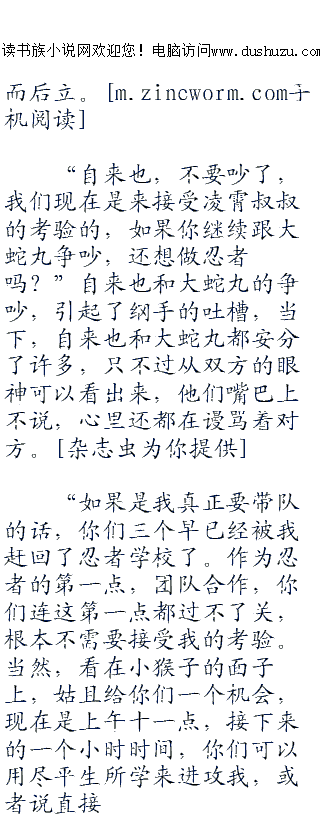 读书族小说网欢迎您！电脑访问www.dushuzu.com
而后立。[m.zincworm.com手
机阅读]
“自来也，不要吵了，
我们现在是来接受凌霄叔叔
的考验的，如果你继续跟大
蛇丸争吵，还想做忍者
吗？”自来也和大蛇丸的争
吵，引起了纲手的吐槽，当
下，自来也和大蛇丸都安分
了许多，只不过从双方的眼
神可以看出来，他们嘴巴上
不说，心里还都在谩骂着对
方。[杂志虫为你提供]
“如果是我真正要带队
的话，你们三个早已经被我
赶回了忍者学校了。作为忍
者的第一点，团队合作，你
们连这第一点都过不了关，
根本不需要接受我的考验。
当然，看在小猴子的面子
上，姑且给你们一个机会，
现在是上午十一点，接下来
的一个小时时间，你们可以
用尽平生所学来进攻我，或
者说直接